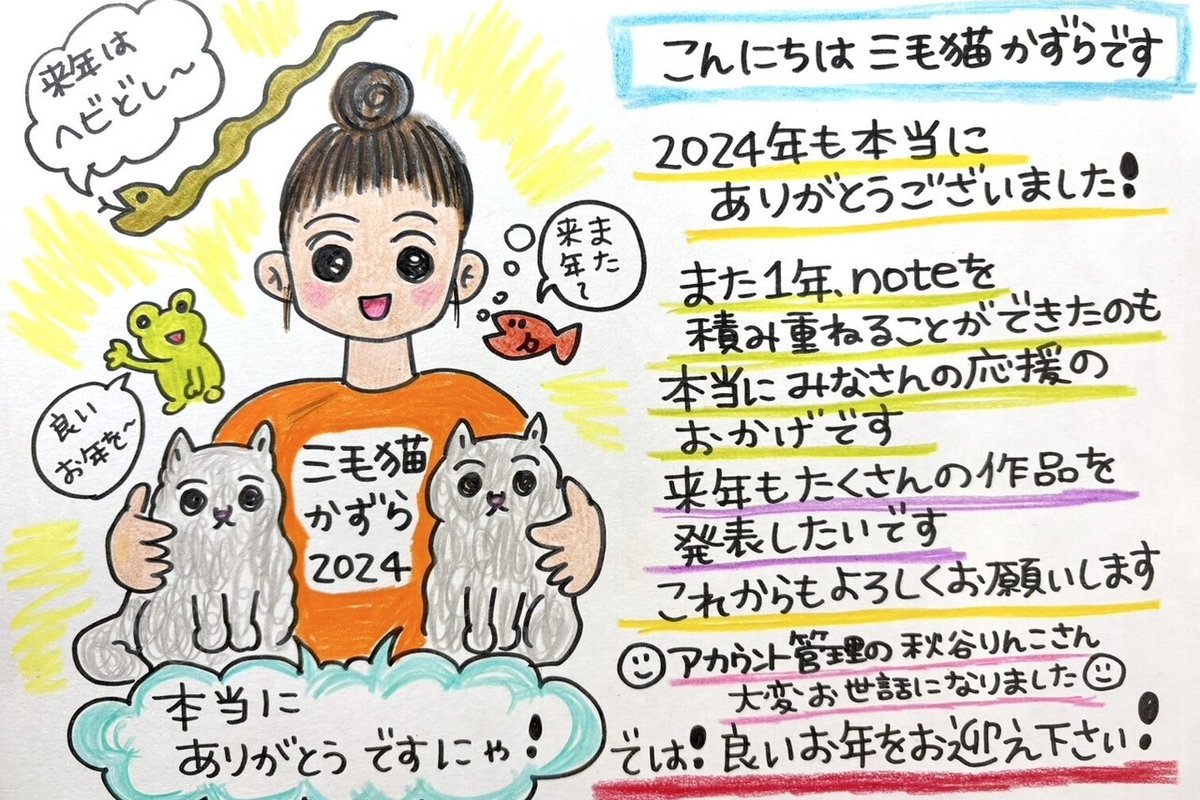 来年は
ヘビどし～
また
来年～
良い
お年を～
三毛猫
かずら
2024
本当に
ありがとうですにゃ!
こんにちは 三毛猫かずらです
2024年も本当に
ありがとうございました!
また1年、noteを
積み重ねることができたのも
本当にみなさんの応援の
おかげです
来年もたくさんの作品を
発表したいです
これからもよろしくお願いします
アカウント管理の秋谷りんこさん
大変お世話になりました
では!良いお年をお迎え下さい!